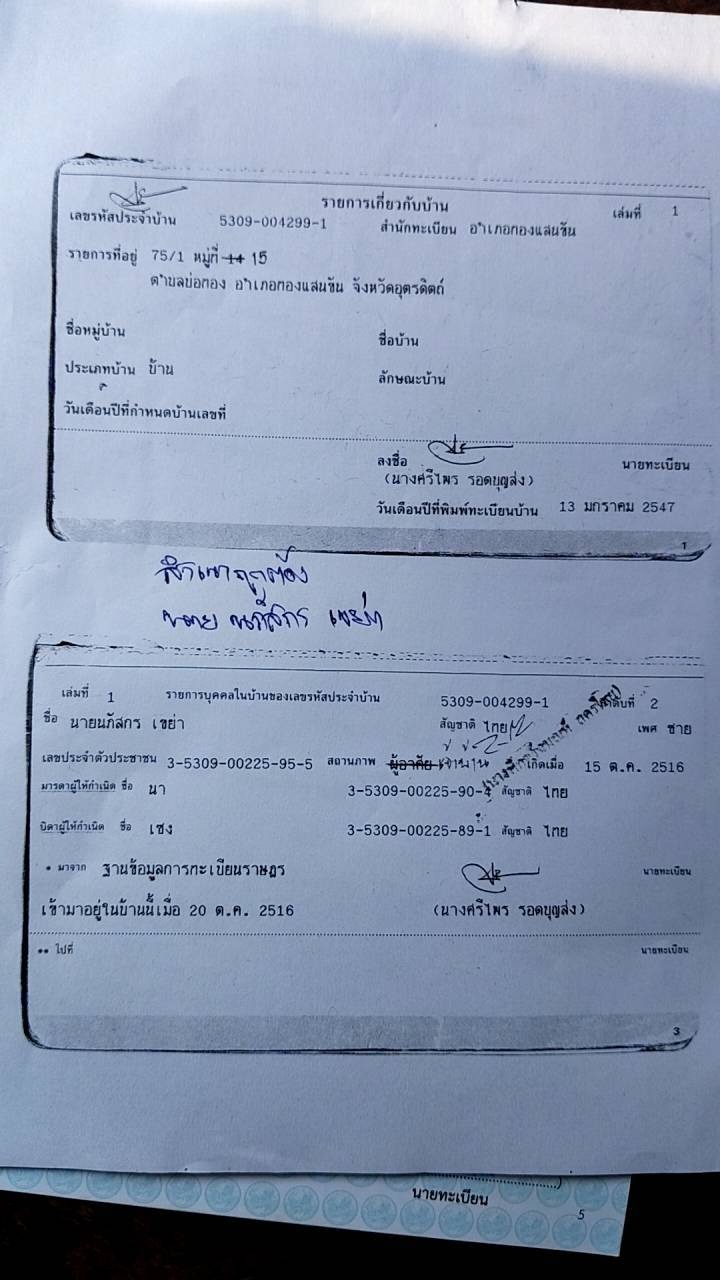 รายการเกี่ยวกับบ้าน เล่มที่ 1
เลขรหัสประจำบ้าน 5309-004299-1 สำนักทะเบียน อำเภอทองแสนขัน
รายการที่อยู่ 75/1 หมู่ที่ 14 15
ตำบลบ่อทอง อำเภอทองแสนขัน จังหวัดอุตรดิตถ์
ชื่อหมู่บ้าน ชื่อบ้าน
ประเภทบ้าน บ้าน ลักษณะบ้าน
วันเดือนปีที่กำหนดบ้านเลขที่
ลงชื่อ นายทะเบียน
(นางศรีไพร รอดบุญส่ง)
วันเดือนปีที่พิมพ์ทะเบียนบ้าน 13 มกราคม 2547
1
สำเนาถูกต้อง
นาย นภัสกร เขย่า
เล่มที่ 1 รายการบุคคลในบ้านของเลขรหัสประจำบ้าน 5309-004299-1 ลำดับที่ 2
ชื่อ นายนภัสกร เขย่า สัญชาติ ไทย เพศ ชาย
เลขประจำตัวประชาชน 3-5309-00225-95-5 สถานภาพ ผู้อาศัย เจ้าบ้าน เกิดเมื่อ 15 ต.ค. 2516
มารดาผู้ให้กำเนิด ชื่อ นา 3-5309-00225-90- สัญชาติ ไทย
บิดาผู้ให้กำเนิด ชื่อ เซง 3-5309-00225-89-1 สัญชาติ ไทย
* มาจาก ฐานข้อมูลการทะเบียนราษฎร นายทะเบียน
เข้ามาอยู่ในบ้านนี้เมื่อ 20 ต.ค. 2516 (นางศรีไพร รอดบุญส่ง)
** ไปที่ นายทะเบียน
3
นายทะเบียน
5